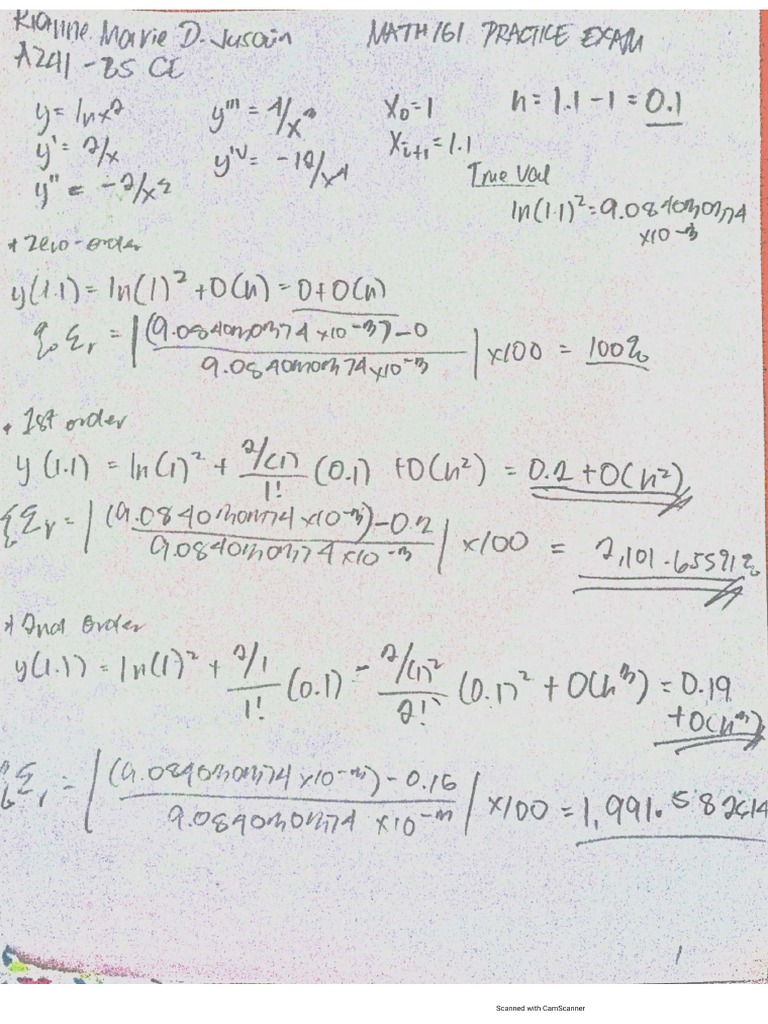 Rianne Marie D. Jusain MATH161 PRACTICE EXAM
A241 - BS CE
y = lnx² y''' = 4/x³ x₀ = 1 h = 1.1 - 1 = 0.1
y' = 2/x y'ⱽ = -12/x⁴ xᵢ₊₁ = 1.1
y'' = -2/x² True Val
ln(1.1)² = 9.084030374
x10⁻³
* Zero-order
y(1.1) = ln(1)² + O(h) = 0 + O(h)
% Ɛᵣ = |(9.084030374 x10⁻³) - 0 / 9.084030374 x10⁻³| x100 = 100%
* 1st order
y(1.1) = ln(1)² + 2/(1)/1! (0.1) + O(h²) = 0.2 + O(h²)
% Ɛᵣ = |(9.084030374 x10⁻³) - 0.2 / 9.084030374 x10⁻³| x100 = 2,101.65591%
* 2nd order
y(1.1) = ln(1)² + 2/1/1! (0.1) - 2/(1)²/2! (0.1)² + O(h³) = 0.19
+ O(h³)
% Ɛᵣ = |(9.084030374 x10⁻³) - 0.16 / 9.084030374 x10⁻³| x100 = 1,991.582614
1
Scanned with CamScanner